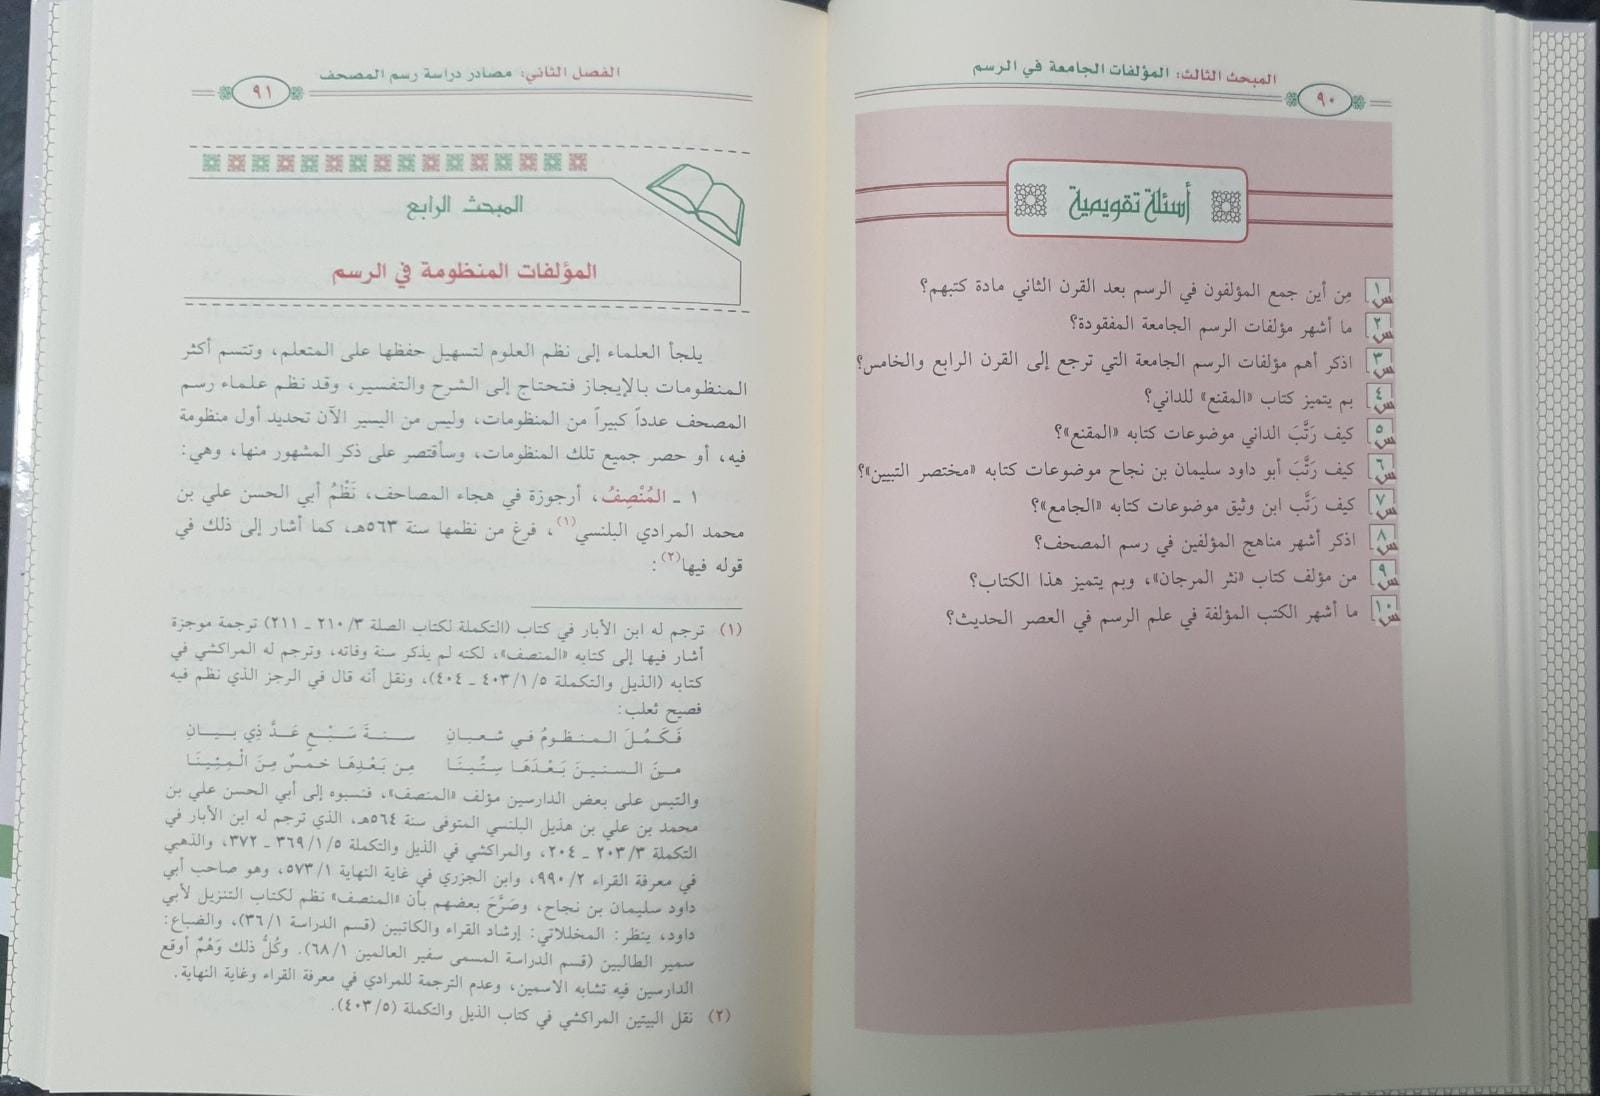 المبحث الثالث: المؤلفات الجامعة في الرسم
٩٠
أسئلة تقويمية
س١ مِن أين جمع المؤلفون في الرسم بعد القرن الثاني مادة كتبهم؟
س٢ ما أشهر مؤلفات الرسم الجامعة المفقودة؟
س٣ اذكر أهم مؤلفات الرسم الجامعة التي ترجع إلى القرن الرابع والخامس؟
س٤ بم يتميز كتاب «المقنع» للداني؟
س٥ كيف رَتَّبَ الداني موضوعات كتابه «المقنع»؟
س٦ كيف رَتَّبَ أبو داود سليمان بن نجاح موضوعات كتابه «مختصر التبيين»؟
س٧ كيف رَتَّب ابن وثيق موضوعات كتابه «الجامع»؟
س٨ اذكر أشهر مناهج المؤلفين في رسم المصحف؟
س٩ من مؤلف كتاب «نثر المرجان»، وبم يتميز هذا الكتاب؟
س١٠ ما أشهر الكتب المؤلفة في علم الرسم في العصر الحديث؟
الفصل الثاني: مصادر دراسة رسم المصحف
٩١
المبحث الرابع
المؤلفات المنظومة في الرسم
يلجأ العلماء إلى نظم العلوم لتسهيل حفظها على المتعلم، وتتسم أكثر
المنظومات بالإيجاز فتحتاج إلى الشرح والتفسير، وقد نظم علماء رسم
المصحف عدداً كبيراً من المنظومات، وليس من اليسير الآن تحديد أول منظومة
فيه، أو حصر جميع تلك المنظومات، وسأقتصر على ذكر المشهور منها، وهي:
١ ـ المُنْصِفُ، أرجوزة في هجاء المصاحف، نَظْمُ أبي الحسن علي بن
محمد المرادي البلنسي(١)، فرغ من نظمها سنة ٥٦٣هـ، كما أشار إلى ذلك في
قوله فيها(٢):
(١) ترجم له ابن الأبار في كتاب (التكملة لكتاب الصلة ٢١٠/٣ ـ ٢١١) ترجمة موجزة
أشار فيها إلى كتابه «المنصف»، لكنه لم يذكر سنة وفاته، وترجم له المراكشي في
كتابه (الذيل والتكملة ٤٠٣/١/٥ ـ ٤٠٤)، ونقل أنه قال في الرجز الذي نظم فيه
فصيح ثعلب:
فَكَمُلَ المنظومُ في شعبانِ سنةَ سَبْعٍ عَدَّ ذِي بيانِ
مِنَ السنينَ بَعْدَهَا سِتِّينَا مِن بَعْدِهَا خمسٌ مِنَ الْمِئِينَا
والتبس على بعض الدارسين مؤلف «المنصف»، فنسبوه إلى أبي الحسن علي بن
محمد بن علي بن هذيل البلنسي المتوفى سنة ٥٦٤هـ، الذي ترجم له ابن الأبار في
التكملة ٢٠٣/٣ ـ ٢٠٤، والمراكشي في الذيل والتكملة ٣٦٩/١/٥ ـ ٣٧٢، والذهبي
في معرفة القراء ٩٩٠/٢، وابن الجزري في غاية النهاية ٥٧٣/١، وهو صاحب أبي
داود سليمان بن نجاح، وصَرَّحَ بعضهم بأن «المنصف» نظم لكتاب التنزيل لأبي
داود، ينظر: المخللاتي: إرشاد القراء والكاتبين (قسم الدراسة ٣٦/١)، والضباع:
سمير الطالبين (قسم الدراسة المسمى سفير العالمين ٦٨/١). وكُلُّ ذلك وَهْمٌ أوقع
الدارسين فيه تشابه الاسمين، وعدم الترجمة للمرادي في معرفة القراء وغاية النهاية.
(٢) نقل البيتين المراكشي في كتاب الذيل والتكملة (٤٠٣/٥).